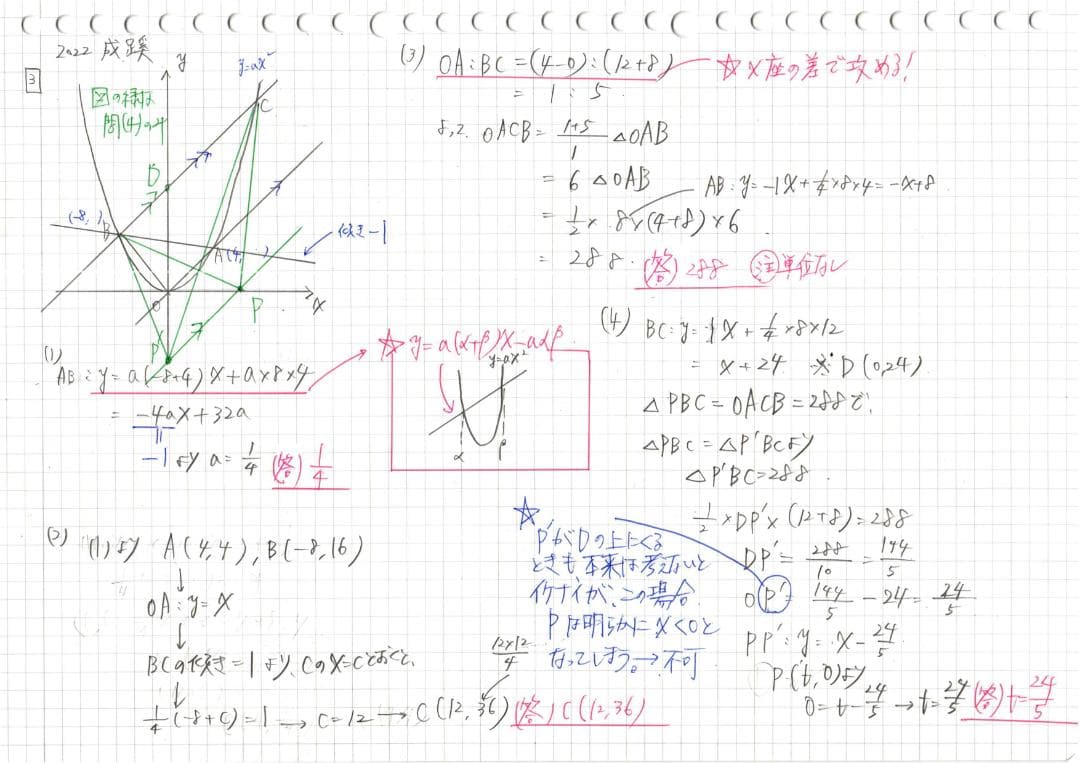 2022 成蹊
3
図の緑は
問(4)のみ
y
y=ax²
C
D
(-8, )
B
A(4, )
傾き-1
O
P
x
P'
(1)
AB:y=a(-8+4)x+a×8×4
=-4ax+32a
-1 より a=1/4 (答) 1/4
☆y=a(α+β)x-aαβ
y=ax²
α
β
(2) (1)より A(4,4),B(-8,16)
↓
OA:y=x
↓
BCの傾き=1より、CのX=Cとおくと、
↓
1/4(-8+c)=1→c=12→C(12,36) (答)C(12,36)
12×12/4
(3) OA:BC=(4-0):(12+8) ☆x座の差で攻める!
=1:5
よって OACB=(1+5)/1 △OAB
=6△OAB
AB:y=-1x+1/4×8×4=-x+8
=1/2×8×(4+8)×6
=288. (答)288 注 単位なし
(4) BC:y=1x+1/4×8×12
=x+24 ※D(0,24)
△PBC=OACB=288で、
△PBC=△P'BCより
△P'BC=288
1/2×DP'×(12+8)=288
DP'=288/10=144/5
OP'=144/5-24=24/5
PP':y=x-24/5
P(t,0)より
0=t-24/5→t=24/5 (答)t=24/5
☆
P'がDの上にくる
ときも本来は考えないと
イケナイが、この場合
Pは明らかにx<0と
なってしまう。→不可